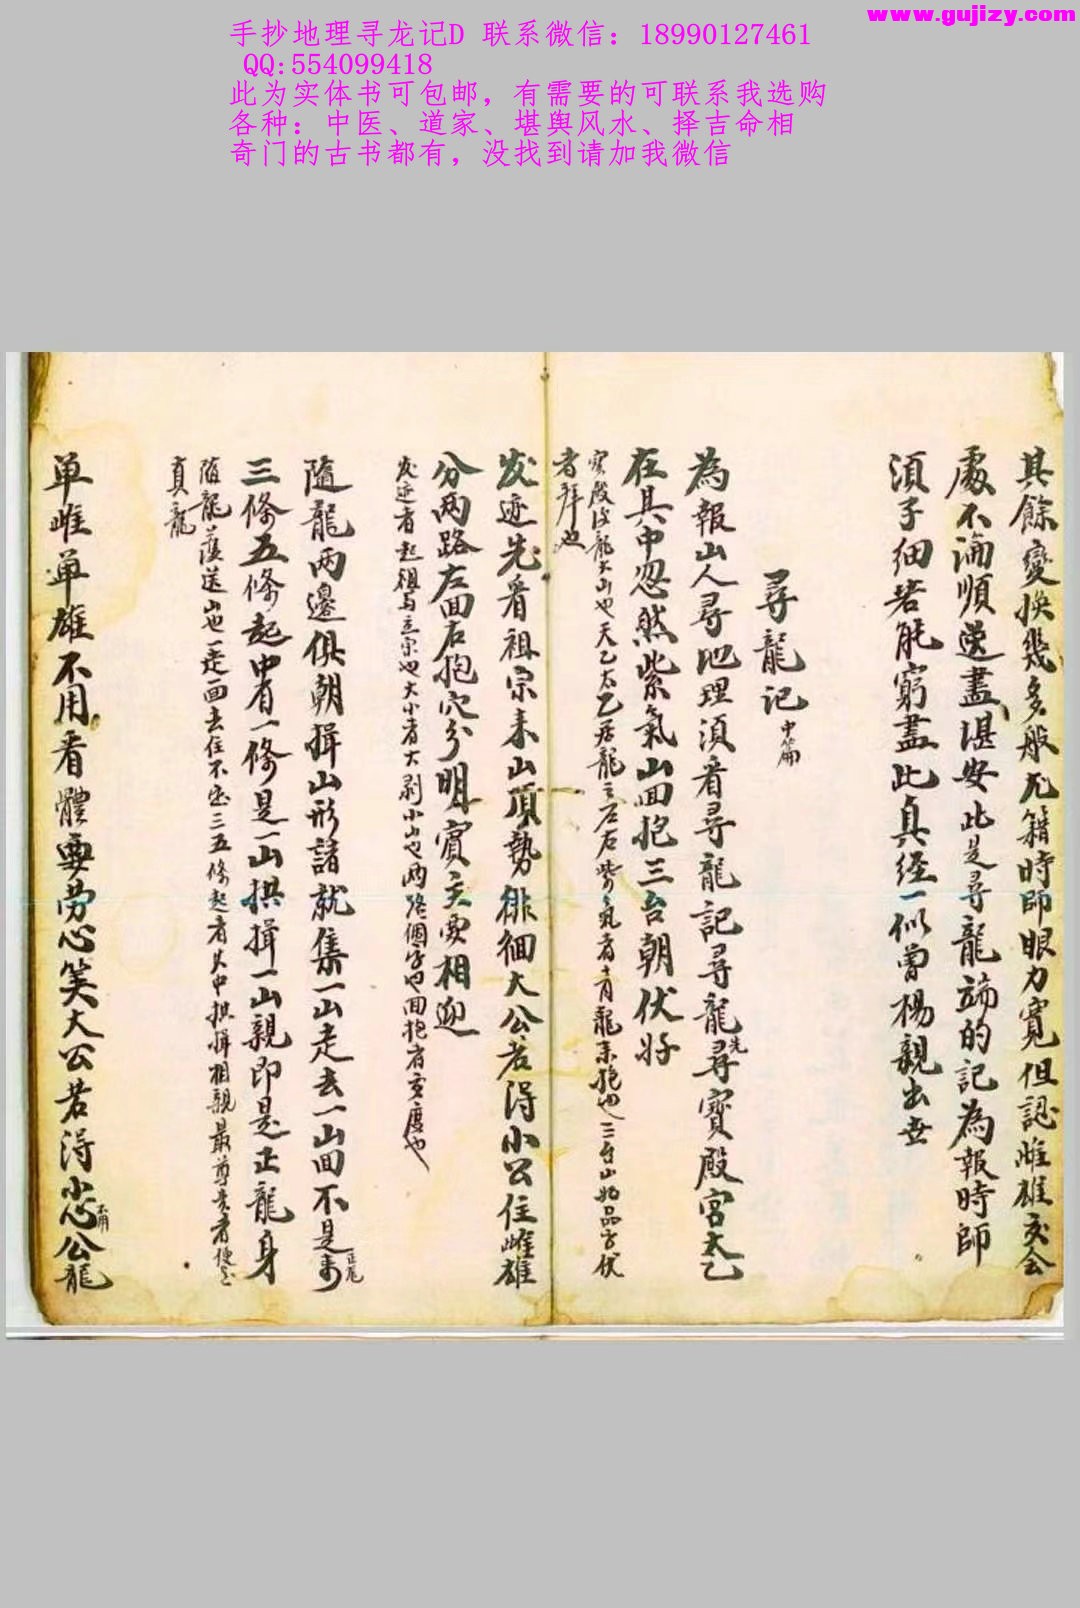 www.gujizy.com
手抄地理寻龙记D 联系微信：18990127461
QQ:554099418
此为实体书可包邮，有需要的可联系我选购
各种：中医、道家、堪舆风水、择吉命相
奇门的古书都有，没找到请加我微信
其餘變換幾多般尤籍時師眼力寬但認雌雄交会
處不論順逆盡堪安此是尋龍端的記為報時師
須子細若能窮盡此真経一似曾楊親出世
尋龍记中篇
為報山人尋地理須看尋龍記尋龍先尋寶殿宮太乙
在其中忽然紫氣山回抱三台朝伏好
寳殿後龍大山也天乙太乙居龍之左右紫氣者青龍来抱也三台山如品字伏
者拜也
发迹先看祖宗来山頂勢徘徊大公若得小公住雌雄
分两路左回右抱穴分明賓主要相迎
发迹者起祖与立宗也大小者大剥小山也两路個字也回抱者交度也
隨龍两邊俱朝揖山形諸就集一山走去一山回不是正龍来
三條五條起中有一條是一山拱揖一山親即是正龍身
随龍護送山也一走一回去住不定三五條起者其中拱揖相親最尊貴者便是
真龍
单雌单雄不用看體要劳心笑大公若得小公龍